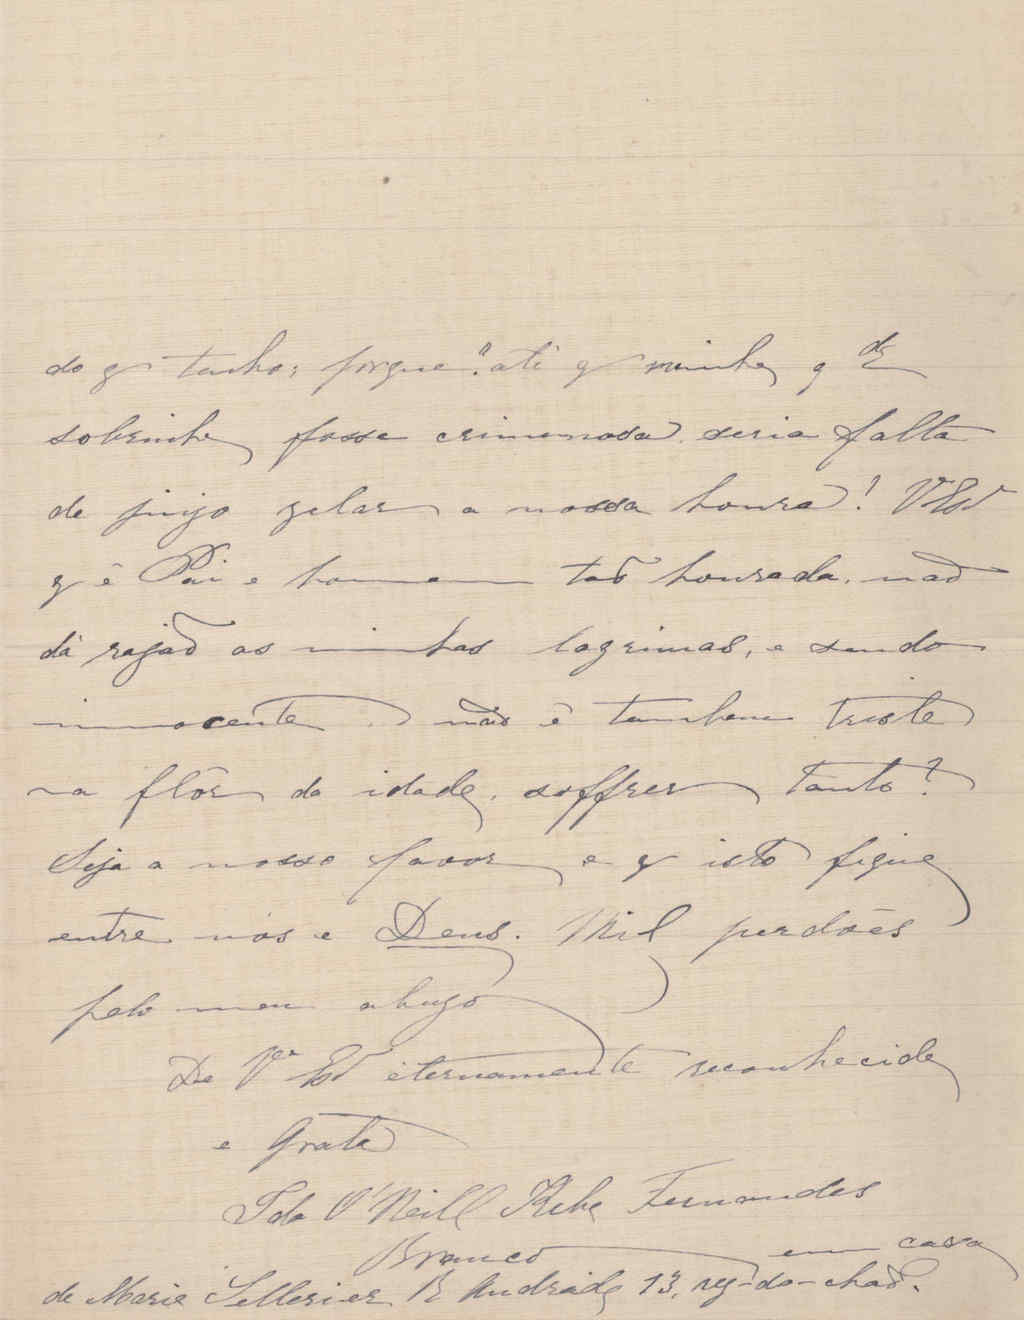 do q tenho; porque "até q minha q de
sobrinha fosse criminosa, seria falta
de juizo zelar a nossa honra! V Exª
q é Pai e homem taõ honrado, naõ
dá razaõ as minhas lagrimas, e sendo
innocente naõ é tambem triste
na flôr da idade, soffrer tanto?
Seja a nosso favor e q isto fique
entre nós e Deus. Mil perdões
pelo meu abuzo
De Vª Exª eternamente reconhecida
e Grata
Ida O'Neill Fernandes
Branco em casa
de Marie Sellerier R Andrade 13, rez-do-chaõ.